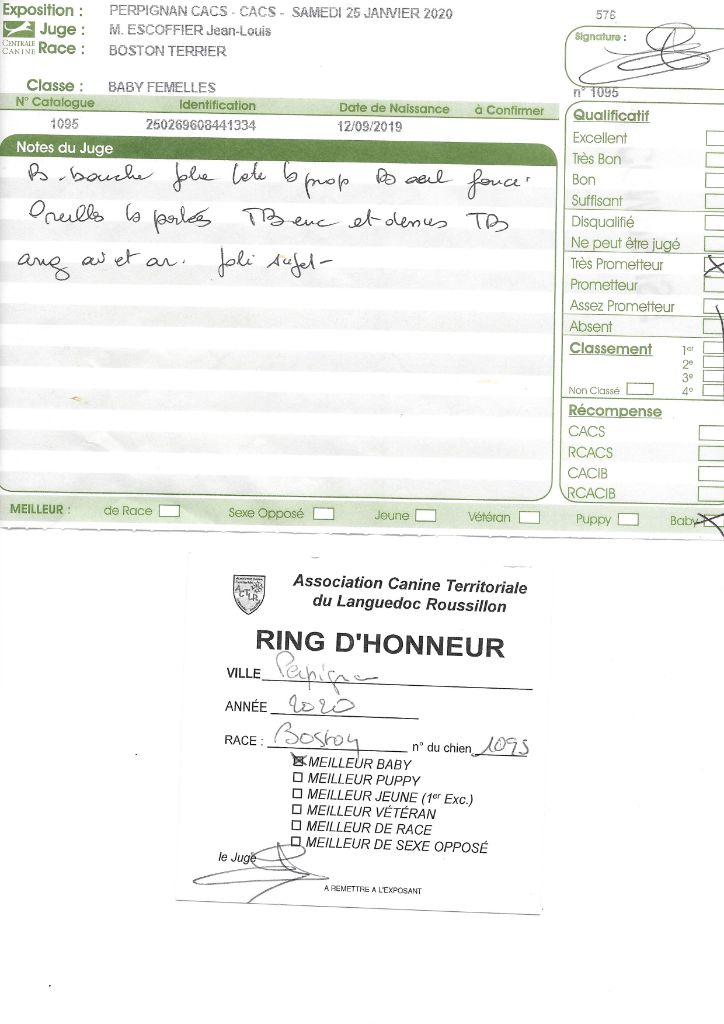 Exposition : PERPIGNAN CACS - CACS - SAMEDI 25 JANVIER 2020
576
Juge : M. ESCOFFIER Jean-Louis
CENTRALE CANINE
Race : BOSTON TERRIER
Signature :
Classe : BABY FEMELLES
n° 1095
N° Catalogue Identification Date de Naissance à Confirmer
1095 250269608441334 12/09/2019
Notes du Juge
B. bouche jolie tete b prop B oeil foncé
Oreilles b portées TB enc et dessus TB
ang av et ar. Joli sujet
Qualificatif
Excellent
Très Bon
Bon
Suffisant
Disqualifié
Ne peut être jugé
Très Prometteur
Prometteur
Assez Prometteur
Absent
Classement 1er
2e
3e
Non Classé 4e
Récompense
CACS
RCACS
CACIB
RCACIB
MEILLEUR : de Race Sexe Opposé Jeune Vétéran Puppy Baby
Association Canine Territoriale
du Languedoc Roussillon
RING D'HONNEUR
VILLE Perpignan
ANNÉE 2020
RACE : Boston n° du chien 1095
MEILLEUR BABY
MEILLEUR PUPPY
MEILLEUR JEUNE (1er Exc.)
MEILLEUR VÉTÉRAN
MEILLEUR DE RACE
MEILLEUR DE SEXE OPPOSÉ
le Juge
A REMETTRE A L'EXPOSANT